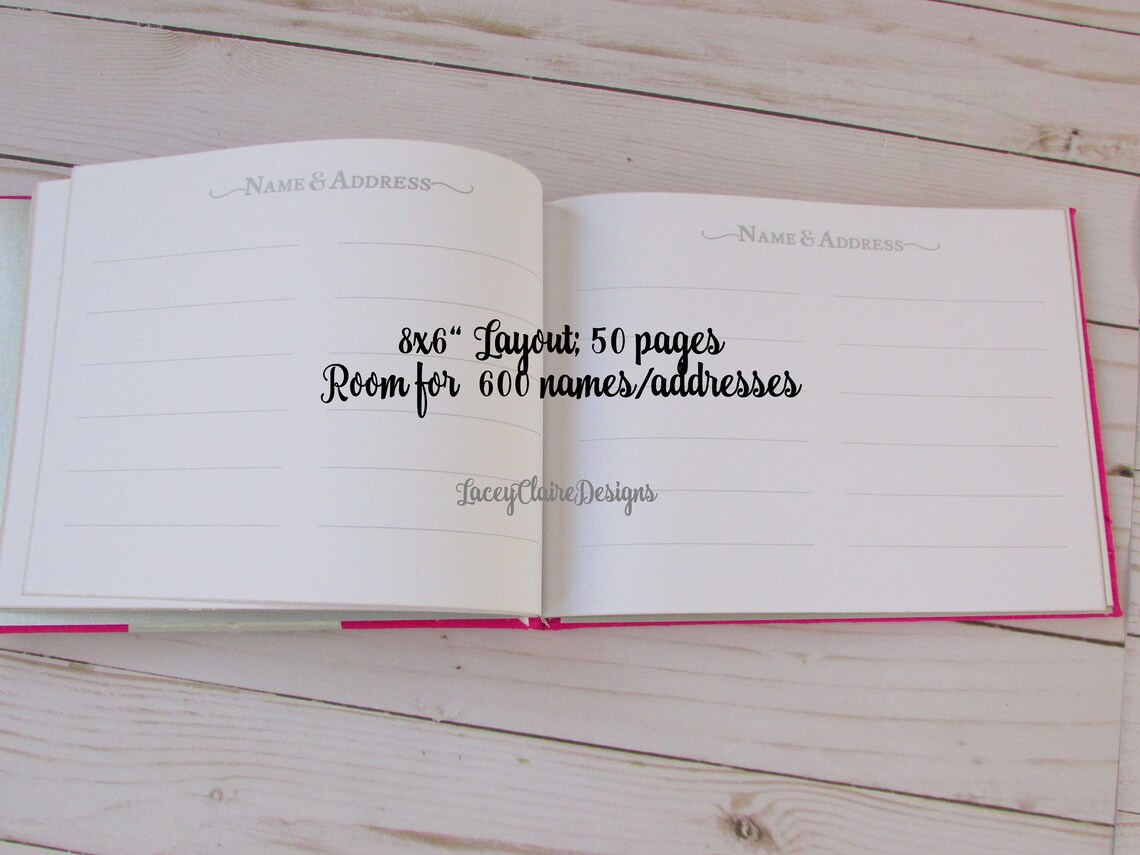 Name & Address
Name & Address
8x6“ Layout; 50 pages
Room for 600 names/addresses
LaceyClaireDesigns